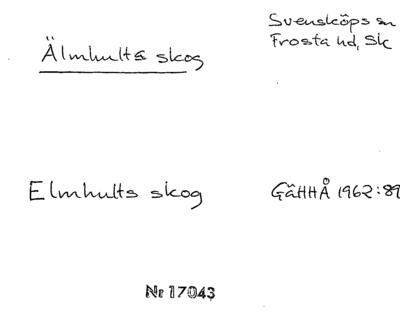 Svensköps sn
Frosta hd, Sk
Älmhults skog
Elmhults skog
GÄHHÅ 1962:89
Nr 17043